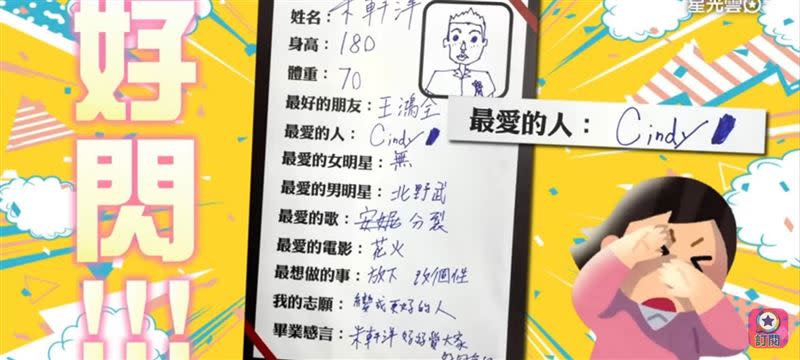 好閃!!!
星光雲
姓名：朱軒洋
身高：180
體重：70
最好的朋友：王鴻全
最愛的人：Cindy
最愛的女明星：無
最愛的男明星：北野武
最愛的歌：安妮 分裂
最愛的電影：花火
最想做的事：放下 改個性
我的志願：變成更好的人
畢業感言：朱軒洋 好好愛大家
最愛的人：Cindy
訂閱